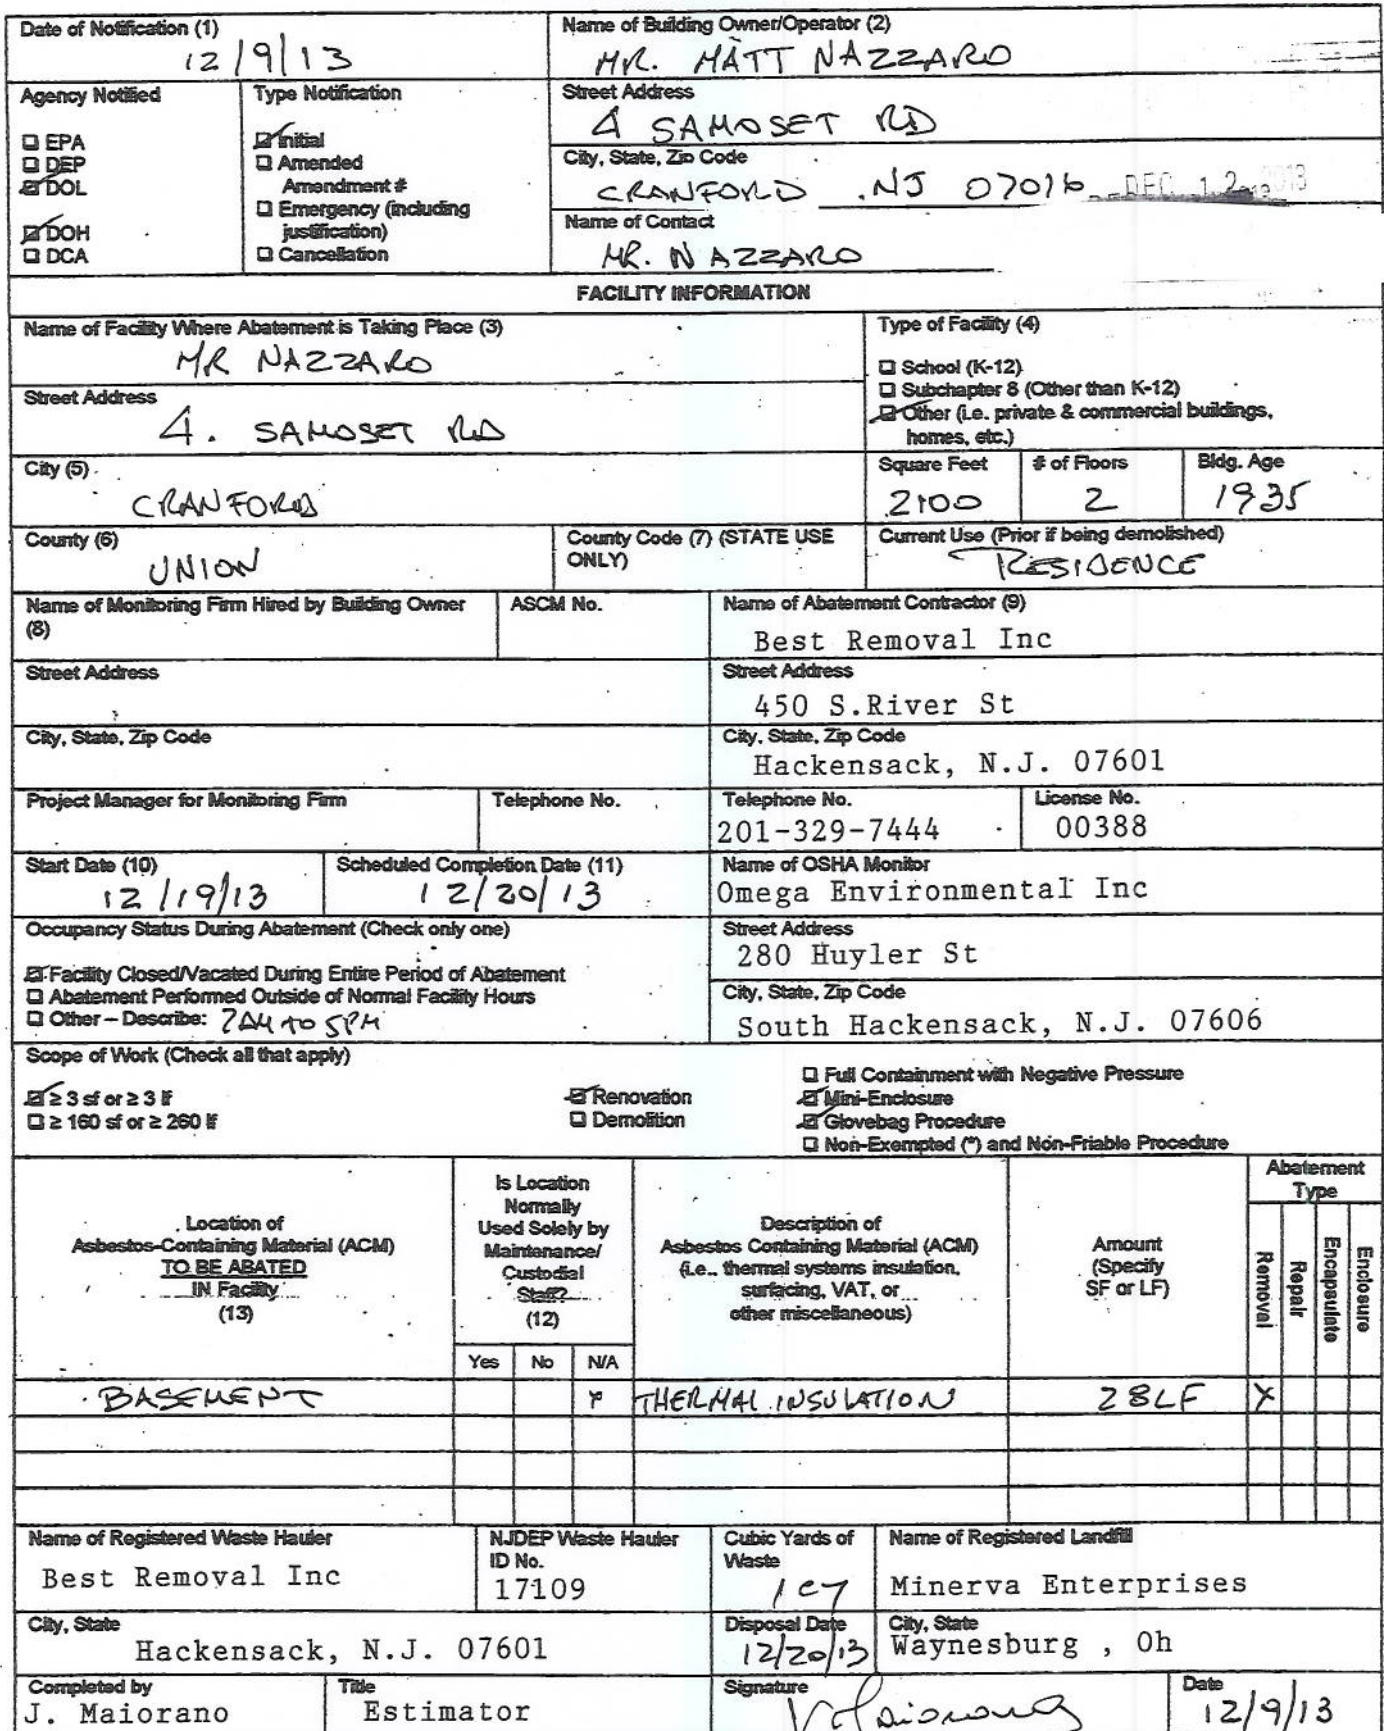 Date of Notification (1)
12/9/13
Name of Building Owner/Operator (2)
MR. MATT NAZZARO
Agency Notified
EPA
DEP
DOL
DOH
DCA
Type Notification
Initial
Amended
Amendment #
Emergency (including
justification)
Cancellation
Street Address
4 SAMOSET RD
City, State, Zip Code
CRANFORD NJ 07016 DEC 12 2013
Name of Contact
MR. NAZZARO
FACILITY INFORMATION
Name of Facility Where Abatement is Taking Place (3)
MR NAZZARO
Type of Facility (4)
School (K-12)
Subchapter 8 (Other than K-12)
Other (i.e. private & commercial buildings,
homes, etc.)
Street Address
4. SAMOSET RD
City (5)
CRANFORD
Square Feet
2100
# of Floors
2
Bldg. Age
1935
County (6)
UNION
County Code (7) (STATE USE
ONLY)
Current Use (Prior if being demolished)
RESIDENCE
Name of Monitoring Firm Hired by Building Owner
(8)
ASCM No.
Name of Abatement Contractor (9)
Best Removal Inc
Street Address
Street Address
450 S.River St
City, State, Zip Code
City, State, Zip Code
Hackensack, N.J. 07601
Project Manager for Monitoring Firm
Telephone No.
Telephone No.
201-329-7444
License No.
00388
Start Date (10)
12/19/13
Scheduled Completion Date (11)
12/20/13
Name of OSHA Monitor
Omega Environmental Inc
Occupancy Status During Abatement (Check only one)
Facility Closed/Vacated During Entire Period of Abatement
Abatement Performed Outside of Normal Facility Hours
Other – Describe: 7AM TO 5PM
Street Address
280 Huyler St
City, State, Zip Code
South Hackensack, N.J. 07606
Scope of Work (Check all that apply)
≥ 3 sf or ≥ 3 lf
≥ 160 sf or ≥ 260 lf
Renovation
Demolition
Full Containment with Negative Pressure
Mini-Enclosure
Glovebag Procedure
Non-Exempted (*) and Non-Friable Procedure
Location of
Asbestos-Containing Material (ACM)
TO BE ABATED
IN Facility
(13)
Is Location
Normally
Used Solely by
Maintenance/
Custodial
Staff?
(12)
Yes No N/A
Description of
Asbestos Containing Material (ACM)
(i.e., thermal systems insulation,
surfacing, VAT, or
other miscellaneous)
Amount
(Specify
SF or LF)
Abatement
Type
Removal
Repair
Encapsulate
Enclosure
BASEMENT X THERMAL INSULATION 28LF X
Name of Registered Waste Hauler
Best Removal Inc
NJDEP Waste Hauler
ID No.
17109
Cubic Yards of
Waste
1 CY
Name of Registered Landfill
Minerva Enterprises
City, State
Hackensack, N.J. 07601
Disposal Date
12/20/13
City, State
Waynesburg , Oh
Completed by
J. Maiorano
Title
Estimator
Signature
Date
12/9/13